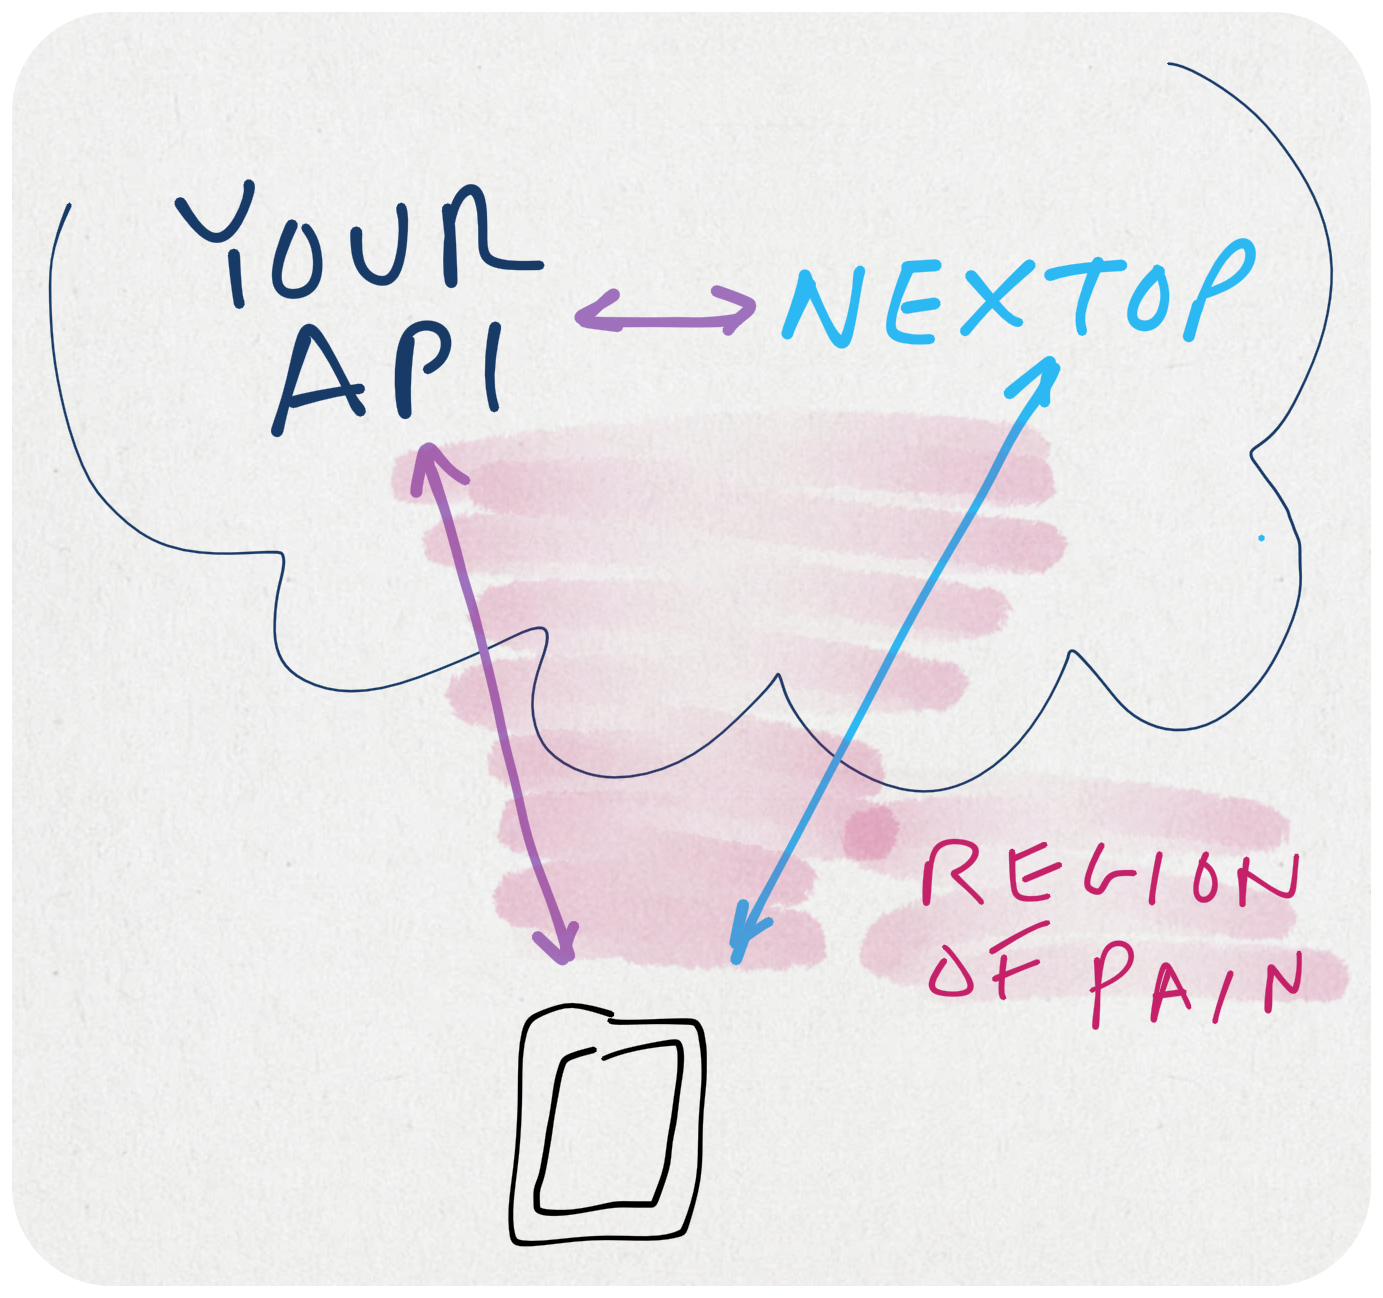 YOUR
API
NEXTOP
REGION
OF PAIN